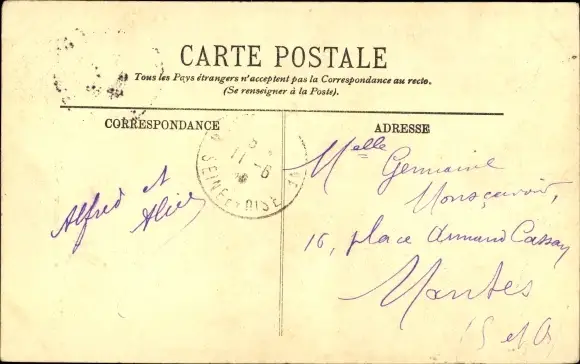 CARTE POSTALE
Tous les Pays étrangers n'acceptent pas la Correspondance au recto.
(Se renseigner à la Poste).
CORRESPONDANCE
ADRESSE
Alfred et
Alice
11-6
SEINE ET OISE
Melle Germaine
16, place Armand Cassan
Mantes
(S et O)